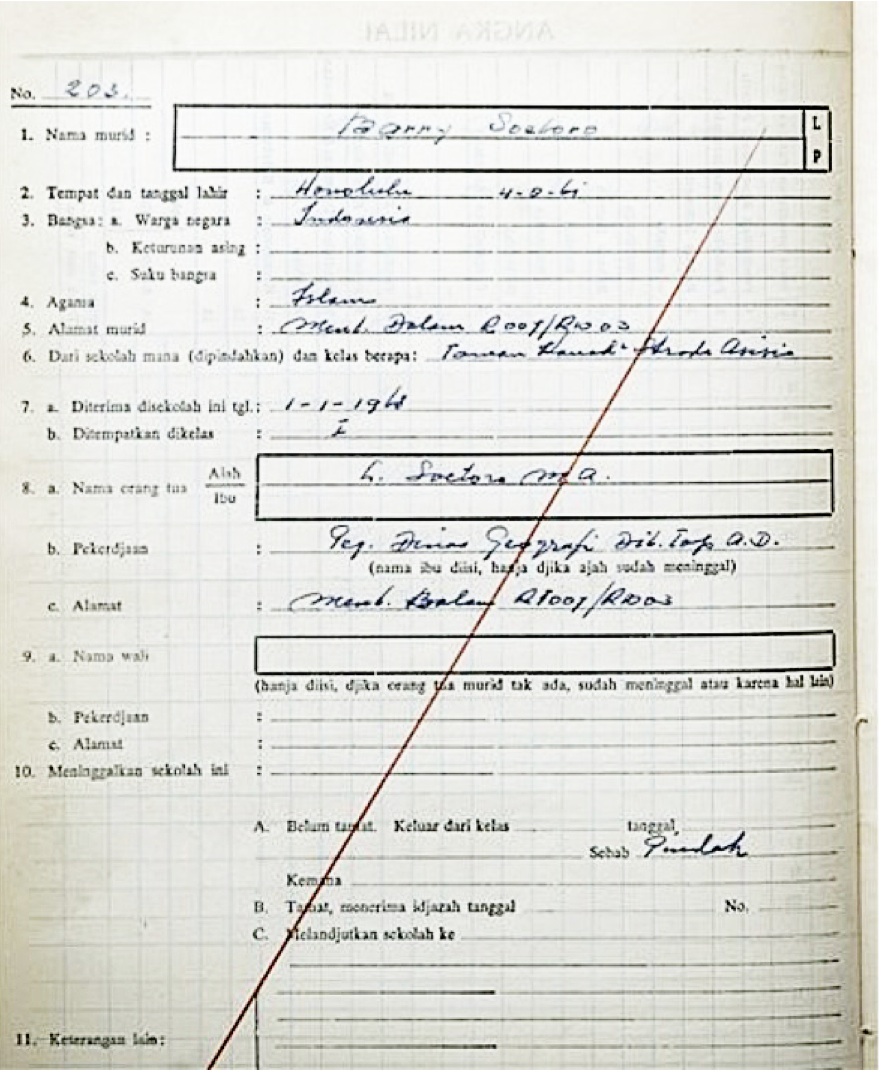 ANGKA NILAI
No. 203.
1. Nama murid : Barry Soetoro L
P
2. Tempat dan tanggal lahir : Honolulu 4-8-61
3. Bangsa: a. Warga negara : Indonesia
b. Keturunan asing :
c. Suku bangsa :
4. Agama : Islam
5. Alamat murid : Ment. Dalam R 007/RW 03
6. Dari sekolah mana (dipindahkan) dan kelas berapa: Taman Strada Asisia
7. a. Diterima disekolah ini tgl.: 1-1-1968
b. Ditempatkan dikelas : I
8. a. Nama orang tua Ajah L. Soetoro M.A.
Ibu
b. Pekerdjaan : Peg. Dinas Geografi Dit. Top. A.D.
(nama ibu diisi, hanja djika ajah sudah meninggal)
c. Alamat : Ment. Dalam RT007/RW03
9. a. Nama wali
(hanja diisi, djika orang tua murid tak ada, sudah meninggal atau karena hal lain)
b. Pekerdjaan :
c. Alamat :
10. Meninggalkan sekolah ini :
A. Belum tamat. Keluar dari kelas tanggal
Sebab Pindah
Kemana
B. Tamat, menerima idjazah tanggal No.
C. Melandjutkan sekolah ke
11. Keterangan lain: